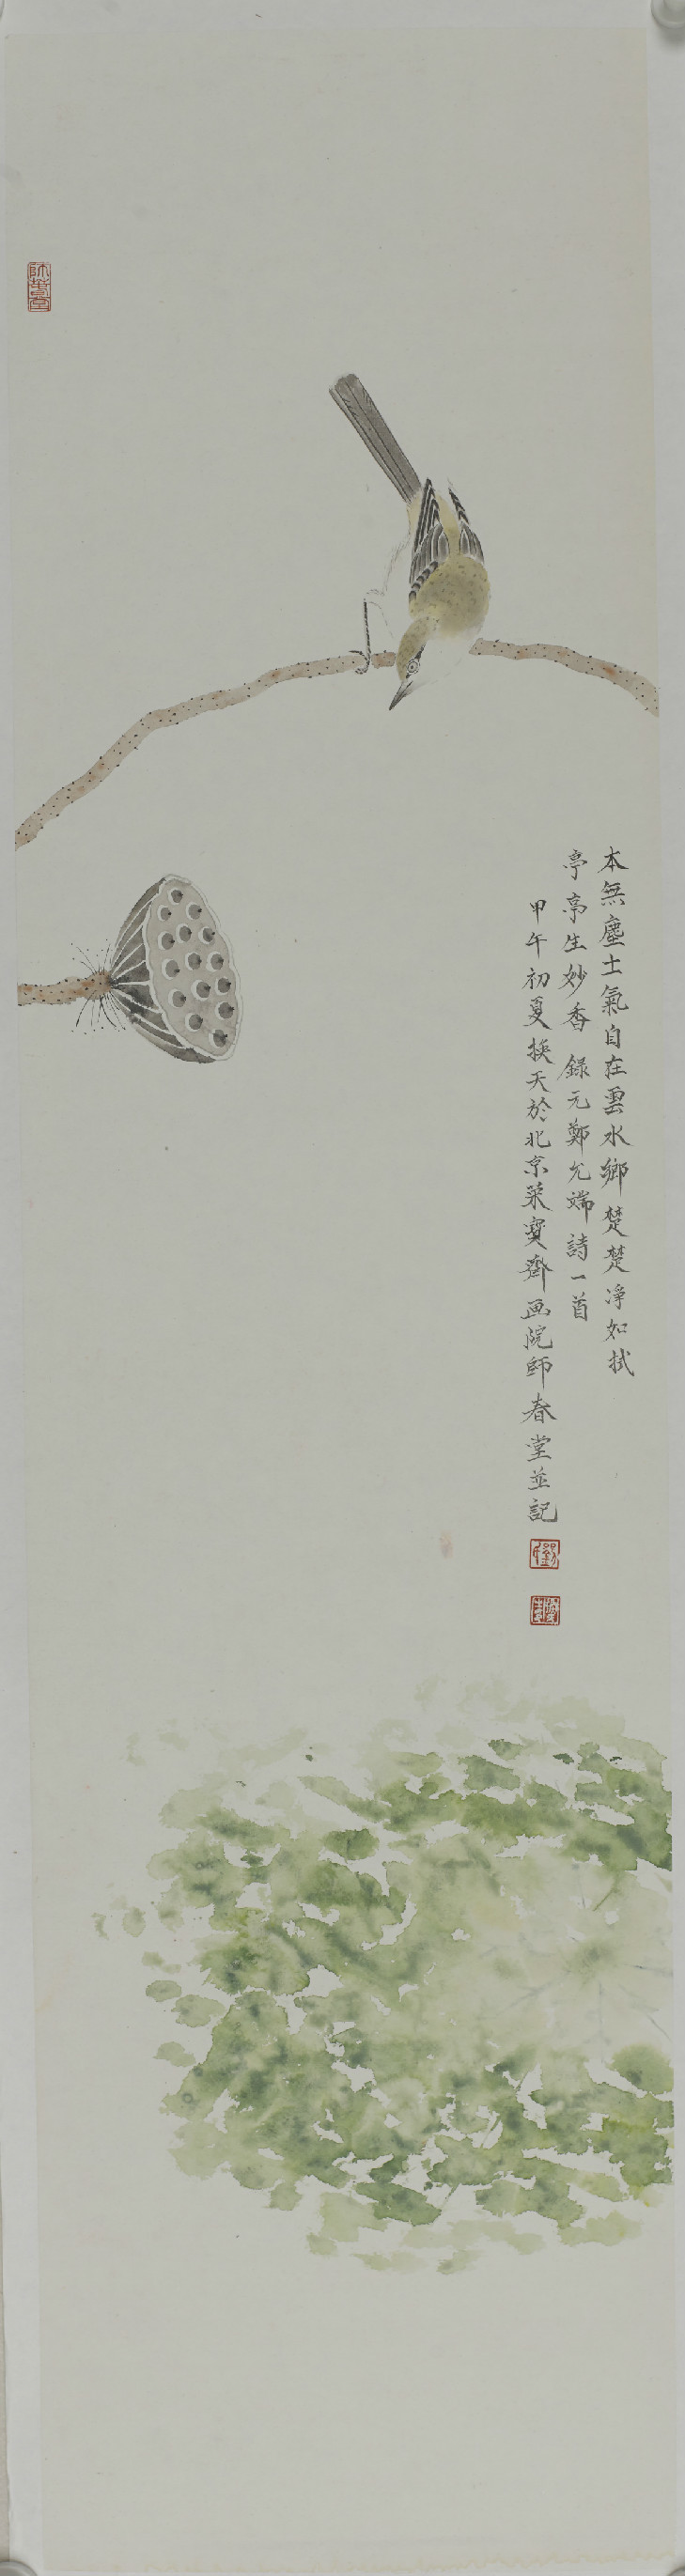 本無塵土氣自在雲水鄉楚楚淨如拭
亭亭生妙香 錄元鄭允端詩一首
甲午初夏挨天於北京榮寶齋画院師春堂並記